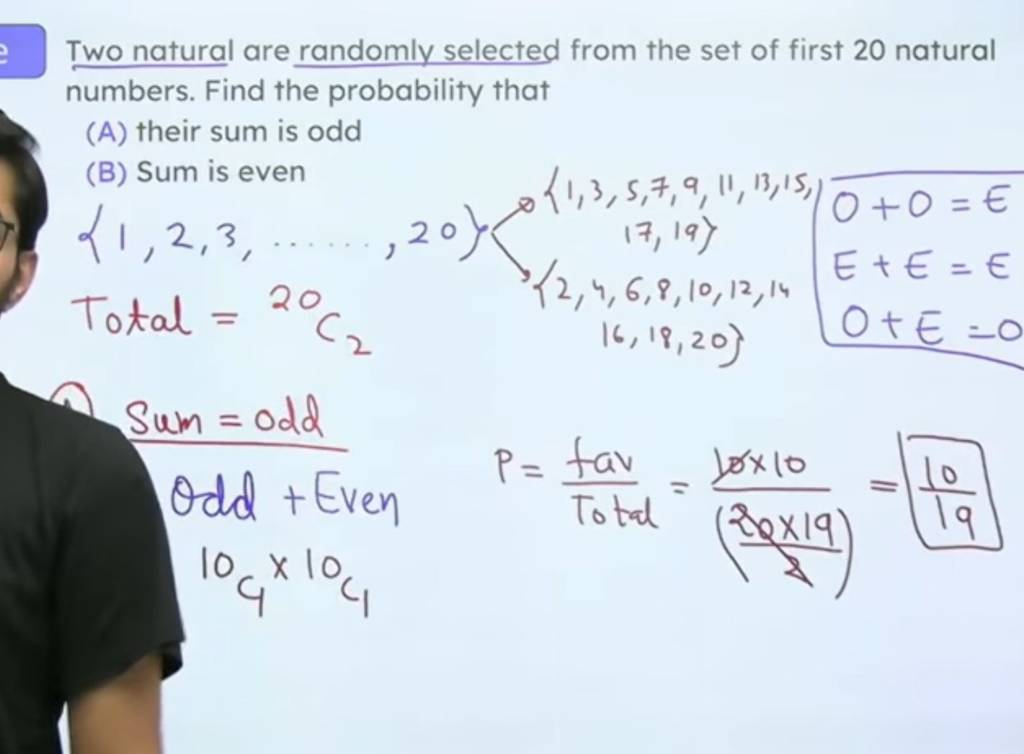 e
Two natural are randomly selected from the set of first 20 natural
numbers. Find the probability that
(A) their sum is odd
(B) Sum is even
{1, 2, 3, ......, 20}
{1, 3, 5, 7, 9, 11, 13, 15,
17, 19}
{2, 4, 6, 8, 10, 12, 14
16, 18, 20}
O + O = E
E + E = E
O + E = O
Total = ²⁰C₂
Sum = odd
Odd + Even
¹⁰C₁ × ¹⁰C₁
P = fav/Total = 10×10/(20×19/2) = 10/19